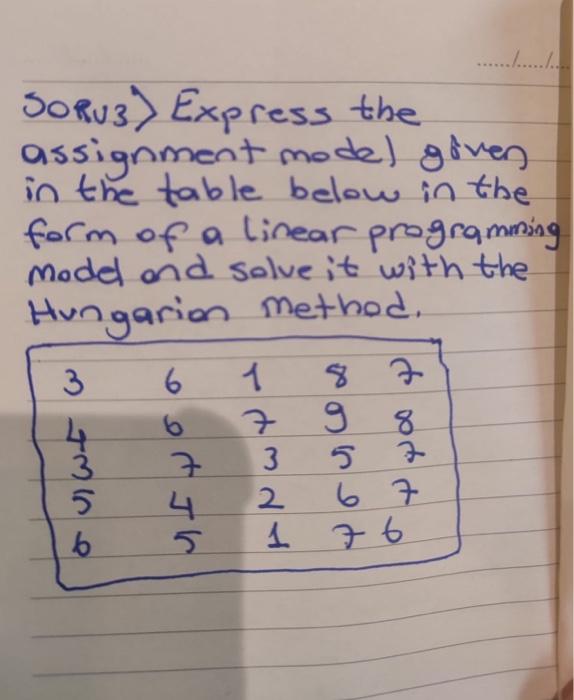 ....../....../....
SORU3) Express the
assignment model given
in the table below in the
form of a linear programming
model and solve it with the
Hungarian method.
3 6 1 8 7
4 6 7 9 8
3 7 3 5 7
5 4 2 6 7
6 5 1 7 6